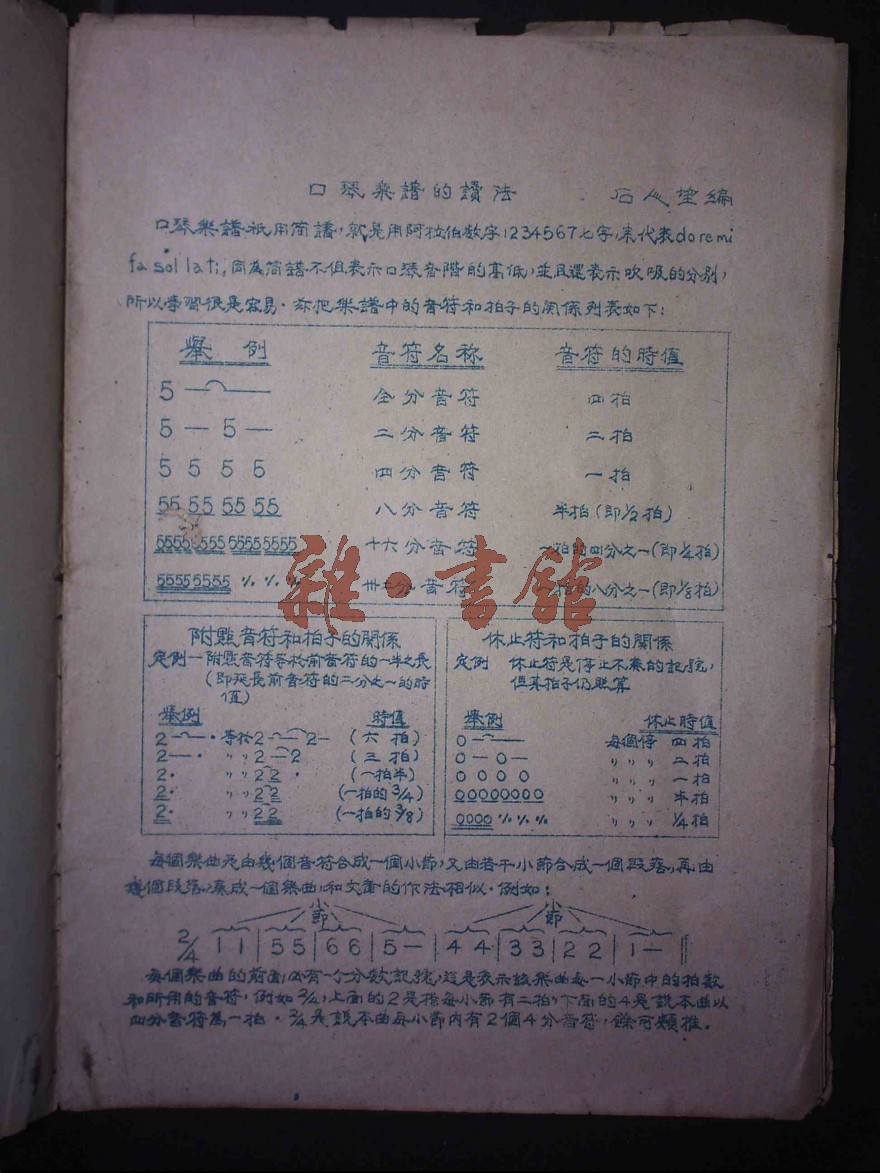 口琴樂譜的讀法 石人望編
口琴樂譜祇用简譜,就是用阿拉伯数字1234567七字,来代表do re mi
fa sol la ti,因為简譜不但表示口琴音階的高低,並且還表示吹吸的分别,
所以學習很是容易.兹把樂譜中的音符和拍子的関係列表如下:
舉例 音符名称 音符的時值
5 — ⌒ — 全分音符 四拍
5 — 5 — 二分音符 二拍
5 5 5 5 四分音符 一拍
55 55 55 55 八分音符 半拍(即1/2拍)
55555555 55555555 十六分音符 一拍的四分之一(即1/4拍)
55555555 ٪ ٪ ٪ 卅二分音符 一拍的八分之一(即1/8拍)
附點音符和拍子的関係
定例—附點音符等於前音符的一半之長
(即延長前音符的二分之一的時
值)
舉例 時值
2—⌒—· 等於2—⌒—2— (六拍)
2—· 〃〃2—2 (三拍)
2· 〃〃22 (一拍半)
2· 〃〃22 (一拍的3/4)
2· 〃〃22 (一拍的3/8)
休止符和拍子的関係
定例 休止符是停止不奏的記號,
但其拍子仍照算
舉例 休止時值
0—⌒— 每個停 四拍
0—0— 〃〃〃 二拍
0 0 0 0 〃〃〃 一拍
00000000 〃〃〃 半拍
0000 ٪ ٪ ٪ 〃〃〃 1/4拍
每個樂曲是由幾個音符合成一個小節,又由若干小節合成一個段落,再由
幾個段落,湊成一個樂曲,和文章的作法相似.例如:
小節 小節
2/4 1 1 | 5 5 | 6 6 | 5 — | 4 4 | 3 3 | 2 2 | 1 — ‖
每個樂曲的前面,必有一个分數記號,這是表示該樂曲每一小節中的拍数
和所用的音符,例如2/4,上面的2是指每小節有二拍,下面的4是說本曲以
四分音符為一拍.2/4是說本曲每小節内有2個4分音符,餘可類推.
雜·書館